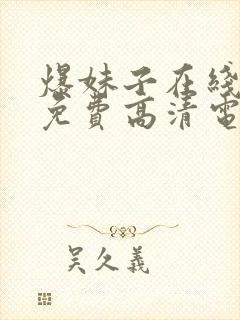 爆妹子在线
免费高清电
吴久義